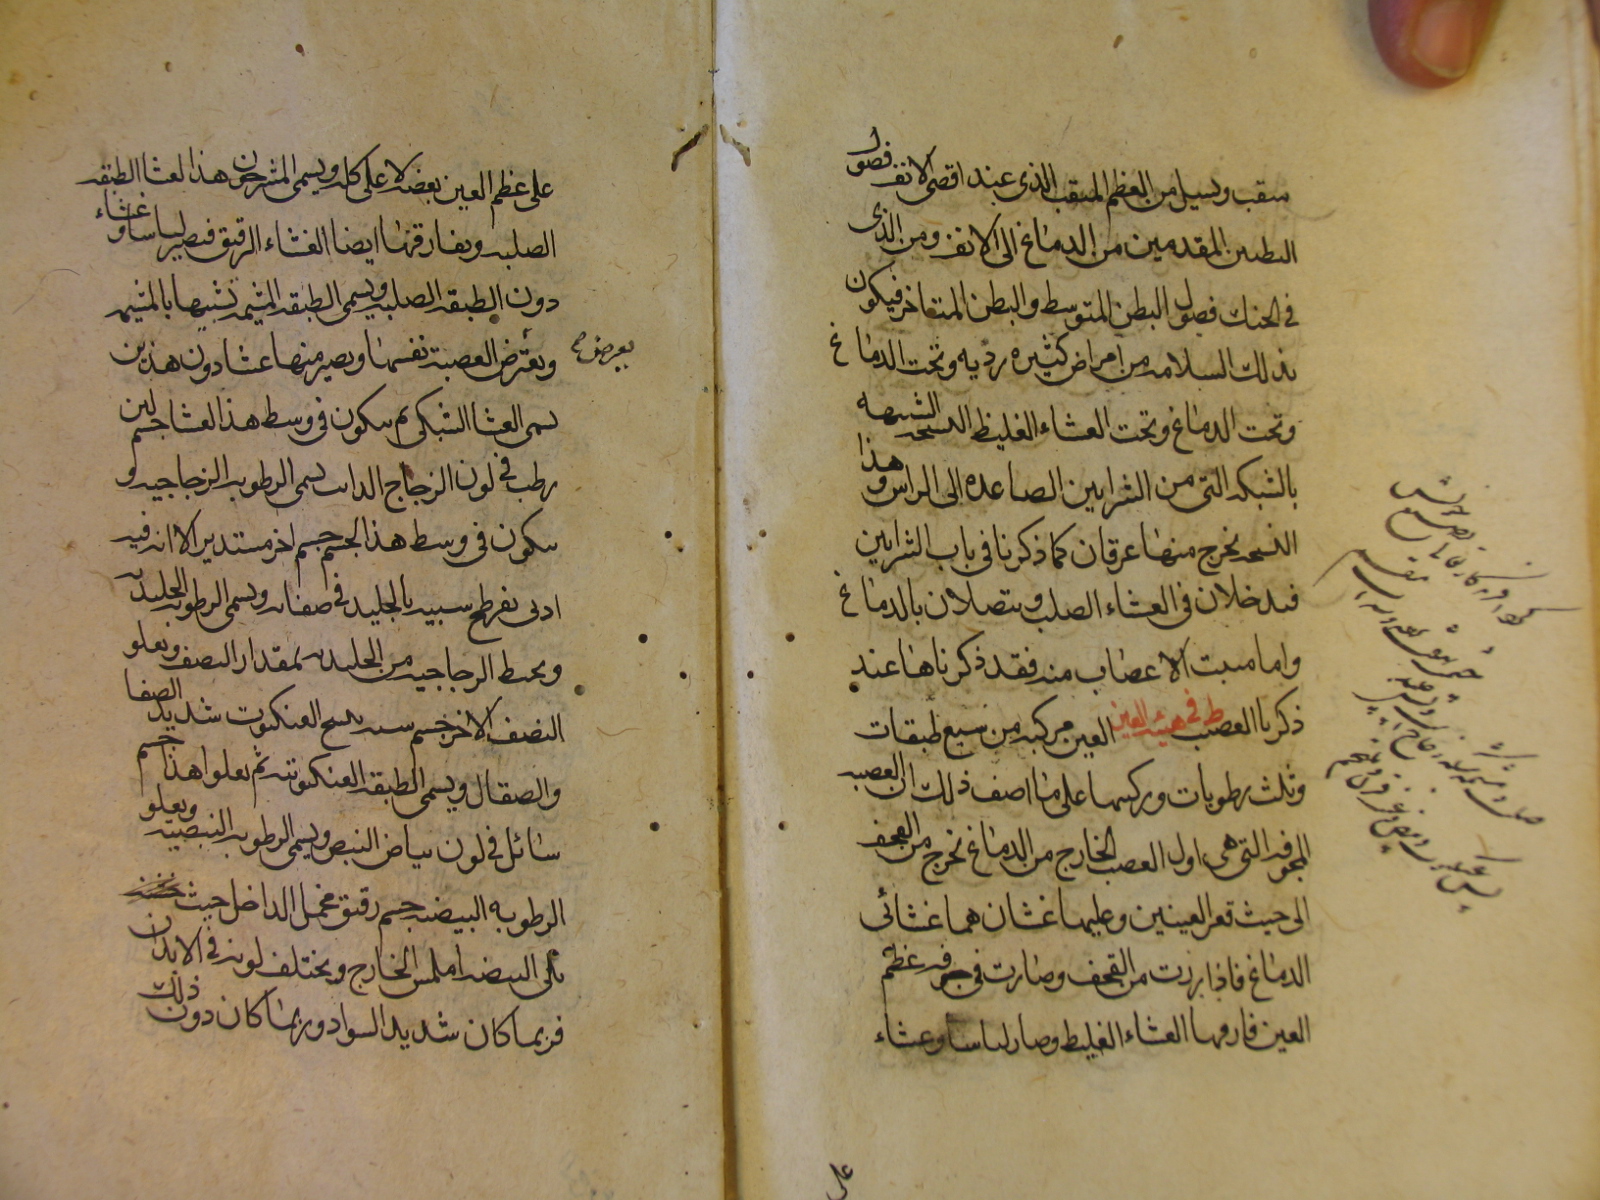 سقب ويسيل من العظم المثقب الذى عند اقصى الانف فصول
البطنين المقدمين من الدماغ الى الانف ومن الذى
فى الحنك فصول البطن المتوسط والبطن المتاخر فيكون
بذلك السلامه من امراض كثيره رديه وتحت الدماغ
وتحت الدماغ وتحت الغشاء الغليظ النسجه الشبيهه
بالشبكه التى من الشرايين الصاعده الى الراس وهذا
النسجه تخرج منها عرقان كما ذكرنا فى باب الشرايين
فيدخلان فى الغشاء الصلب ويتصلان بالدماغ
واما منبت الاعصاب منه فقد ذكرناها عند
ذكرنا العصب ط فى هيئه العين العين مركبه من سبع طبقات
وثلث رطوبات وتركيبها على ما اصف ذلك ان العصبه
المجوفه التى هى اول العصب الخارج من الدماغ تخرج من القحف
الى حيث قعر العينين وعليها غشان هما غشائى
الدماغ فاذا برزت من القحف وصارت فى جوفه عظم
العين فارقها الغشاء الغليظ وصار لباسا وغشاء
على
على عظم العين بعضه لا على كله ويسمى المشرحون هذا الغشا الطبقه
الصلبه ويفارقها ايضا الغشاء الرقيق فيصير لباسا وغشاء
دون الطبقه الصلبه ويسمى الطبقه المشيمه تشبيها بالمشيمه
ويعترض العصبة نفسها ويصير منها غشا دون هذين
يعرض صح
يسمى الغشا الشبكى ثم يكون فى وسط هذا الغشا جسم لين
رطب فى لون الزجاج الذايب يسمى الرطوبه الزجاجيه و
يكون فى وسط هذا الجسم جسم اخر مستدير الا انه فيه
ادنى تفرطح شبيه بالجليد فى صفائه ويسمى الرطوبه الجليديه
ويحيط الزجاجيه من الجليديه بمقدار النصف ويعلو
النصف الاخر جسم شبيه بنسج العنكبوت شديد الصفا
والصقال ويسمى الطبقه العنكبوتيه ثم يعلوا هذا جسم
سائل فى لون بياض البيض ويسمى الرطوبه البيضيه ويعلو
الرطوبه البيضيه جسم رقيق مخمل الداخل حيث
يلى البيضه املس الخارج ويختلف لونه فى الابدان
فربما كان شديد السواد وربما كان دون ذلك